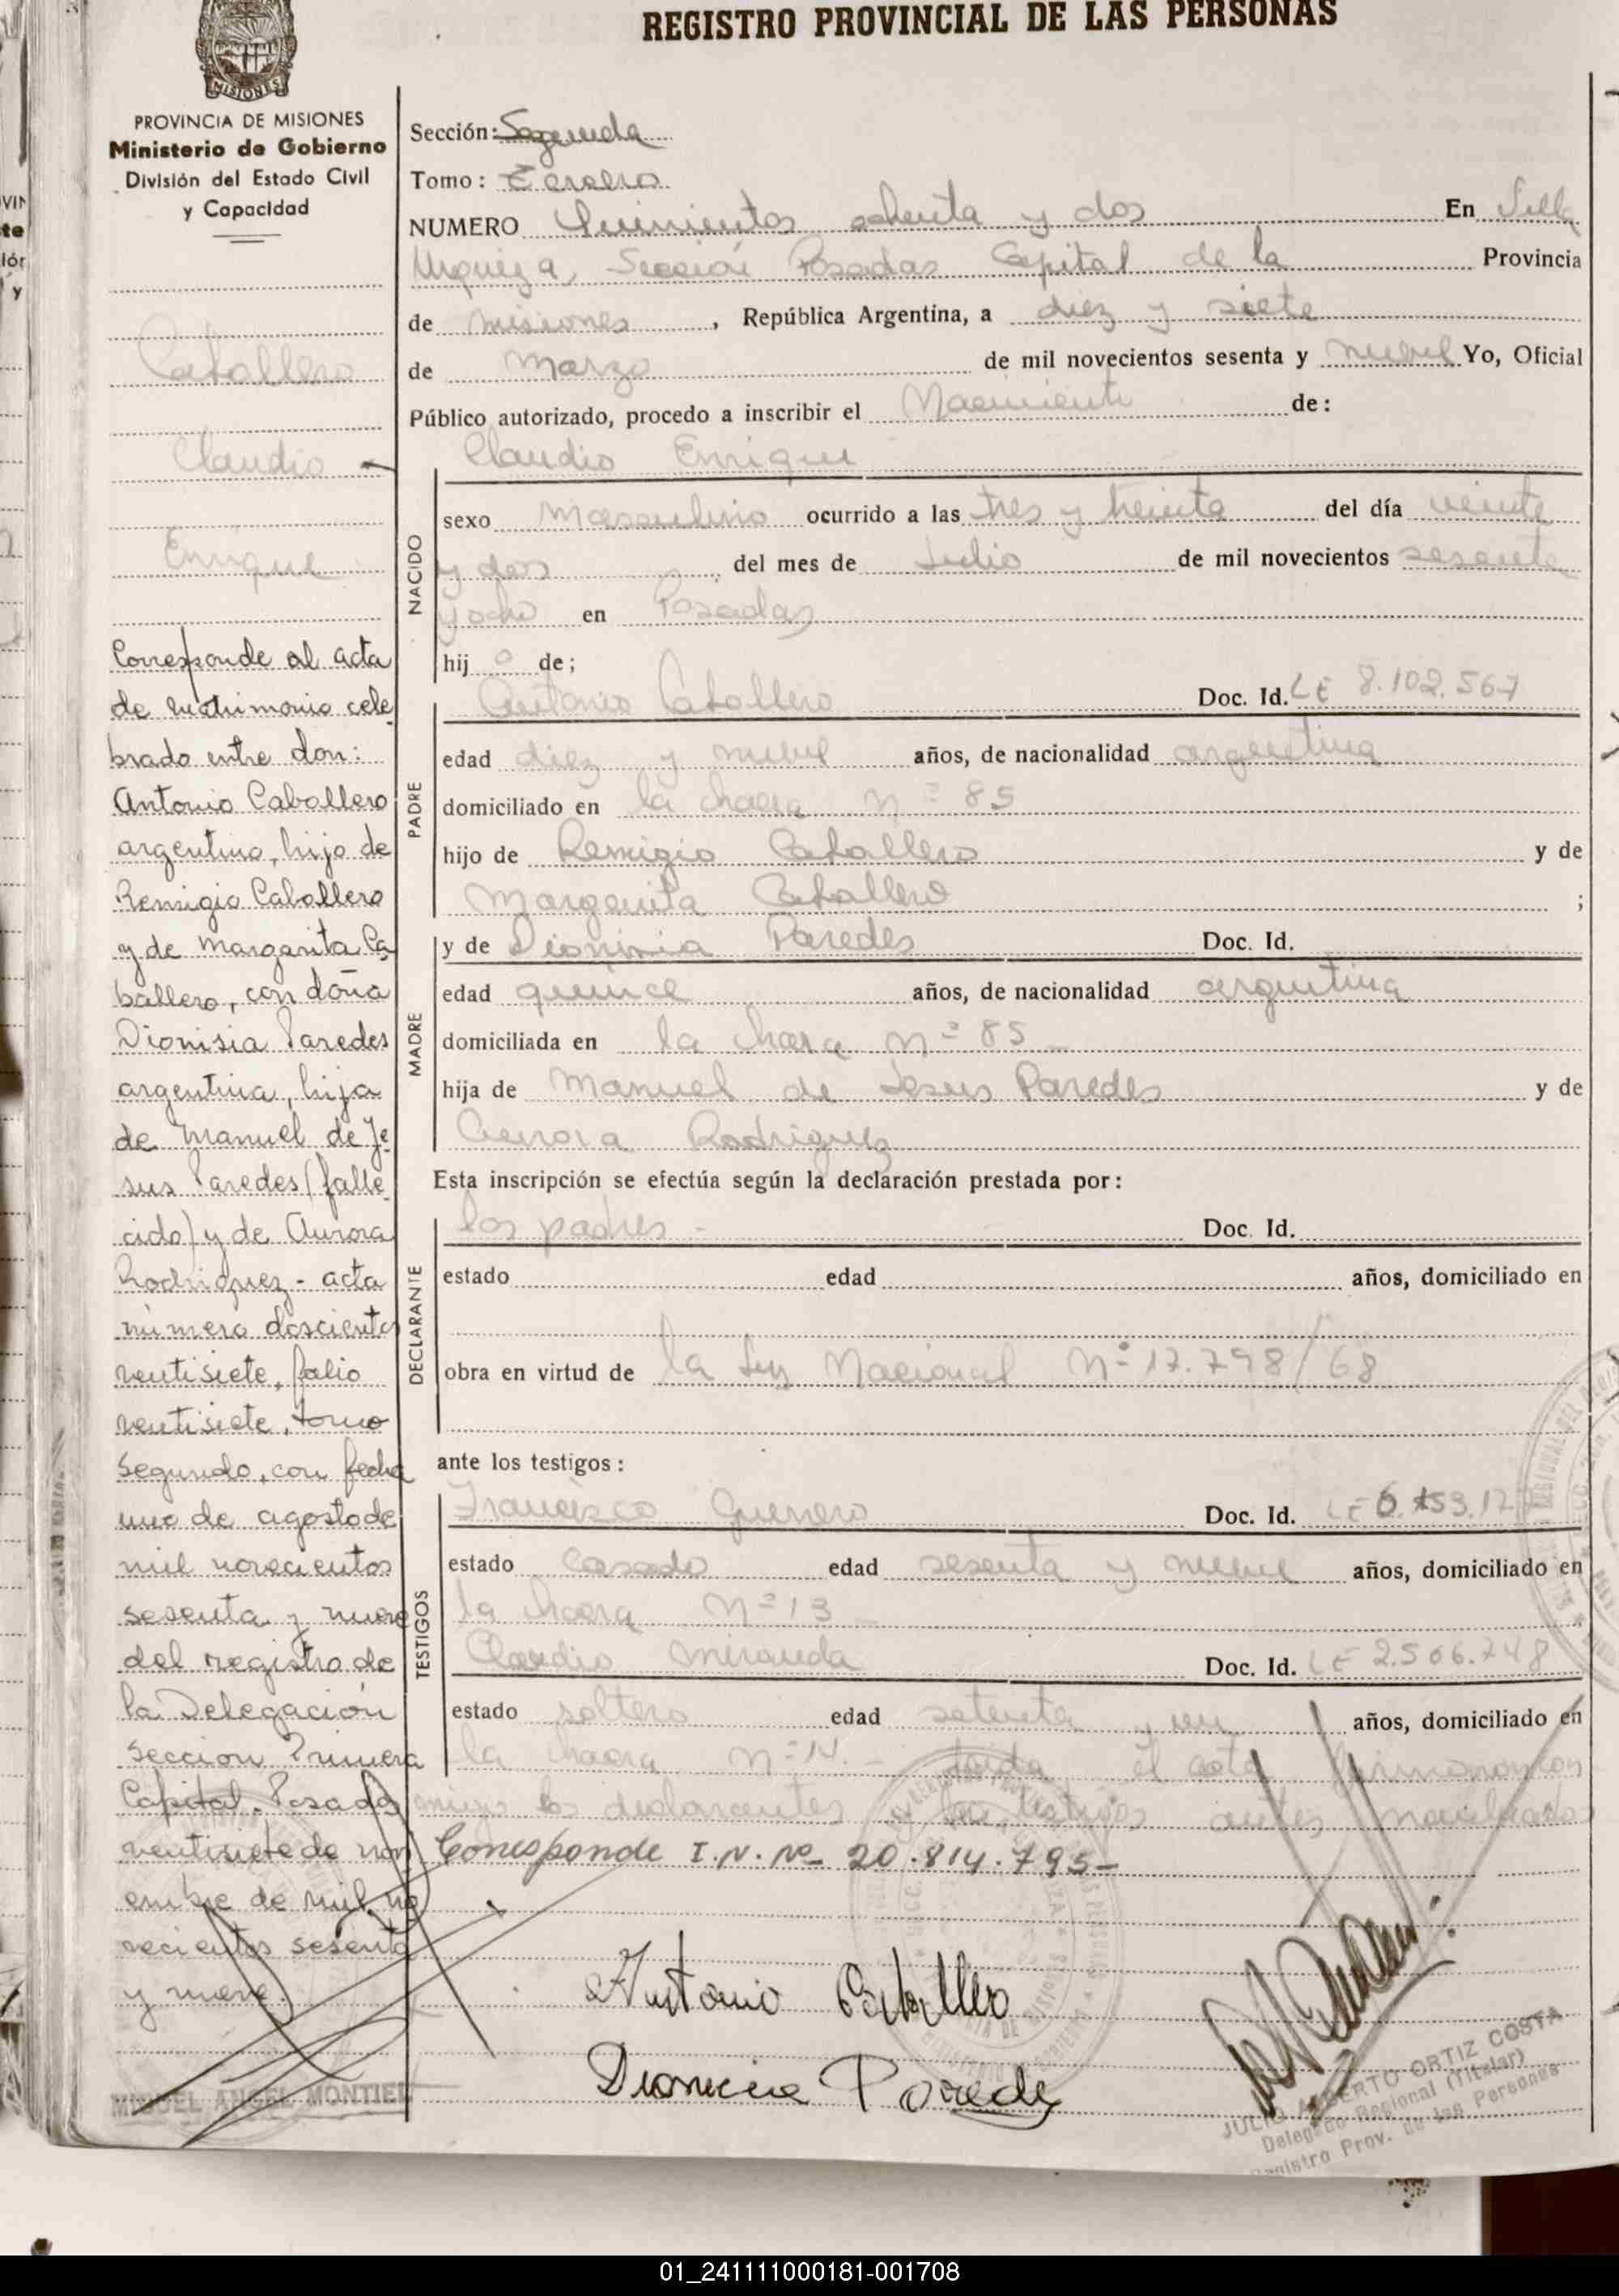 REGISTRO PROVINCIAL DE LAS PERSONAS
MISIONES
PROVINCIA DE MISIONES
Ministerio de Gobierno
División del Estado Civil
y Capacidad
Caballero
Claudio
Enrique
Corresponde al acta
de matrimonio cele
brado entre don:
Antonio Caballero
argentino, hijo de
Remigio Caballero
y de Margarita Ca
ballero, con doña
Dionisia Paredes
argentina, hija
de Manuel de Je
sus Paredes (falle
cido) y de Aurora
Rodriguez - acta
número doscientos
ventisiete, folio
ventisiete, tomo
segundo, con fecha
uno de agosto de
mil novecientos
sesenta y nueve
del registro de
la Delegación
Sección Primera
Capital. Posadas
de nov
embre de mil no
vecientos sesenta
y nueve.
MIGUEL ANGEL MONTIEL
Sección: Segunda
Tomo: Tercero
NUMERO Quinientos ochenta y dos En Villa
Urquiza, Sección Posadas Capital de la Provincia
de Misiones, República Argentina, a diez y siete
de Marzo de mil novecientos sesenta y nueve Yo, Oficial
Público autorizado, procedo a inscribir el Nacimiento de:
Claudio Enrique
NACIDO
sexo Masculino ocurrido a las tres y treinta del día veinte
y dos del mes de Julio de mil novecientos sesenta
y ocho en Posadas
hijo de;
PADRE
Antonio Caballero Doc. Id. LE 8.102.567
edad diez y nueve años, de nacionalidad argentina
domiciliado en la chacra Nº 85
hijo de Remigio Caballero y de
Margarita Caballero ;
MADRE
y de Dionisia Paredes Doc. Id.
edad quince años, de nacionalidad argentina
domiciliada en la chacra Nº 85
hija de Manuel de Jesus Paredes y de
Aurora Rodriguez
Esta inscripción se efectúa según la declaración prestada por:
DECLARANTE
los padres - Doc. Id.
estado edad años, domiciliado en
obra en virtud de la Ley Nacional Nº 17.798/68
ante los testigos:
TESTIGOS
Francisco Guerrero Doc. Id. LE
estado casado edad sesenta y nueve años, domiciliado en
la chacra Nº 13
Claudio Miranda Doc. Id. LE 2.506.748
estado soltero edad setenta y un años, domiciliado en
la chacra Nº 14. - Leida el acta firmaron con
migo los declarantes y los testigos antes nombrados
Corresponde I.N. Nº 20.814.795-
Antonio Caballero
Dionicia Parede
JULIO ALBERTO ORTIZ COSTA
Delegado Regional (Titular)
Registro Prov. de las Personas
01_241111000181-001708